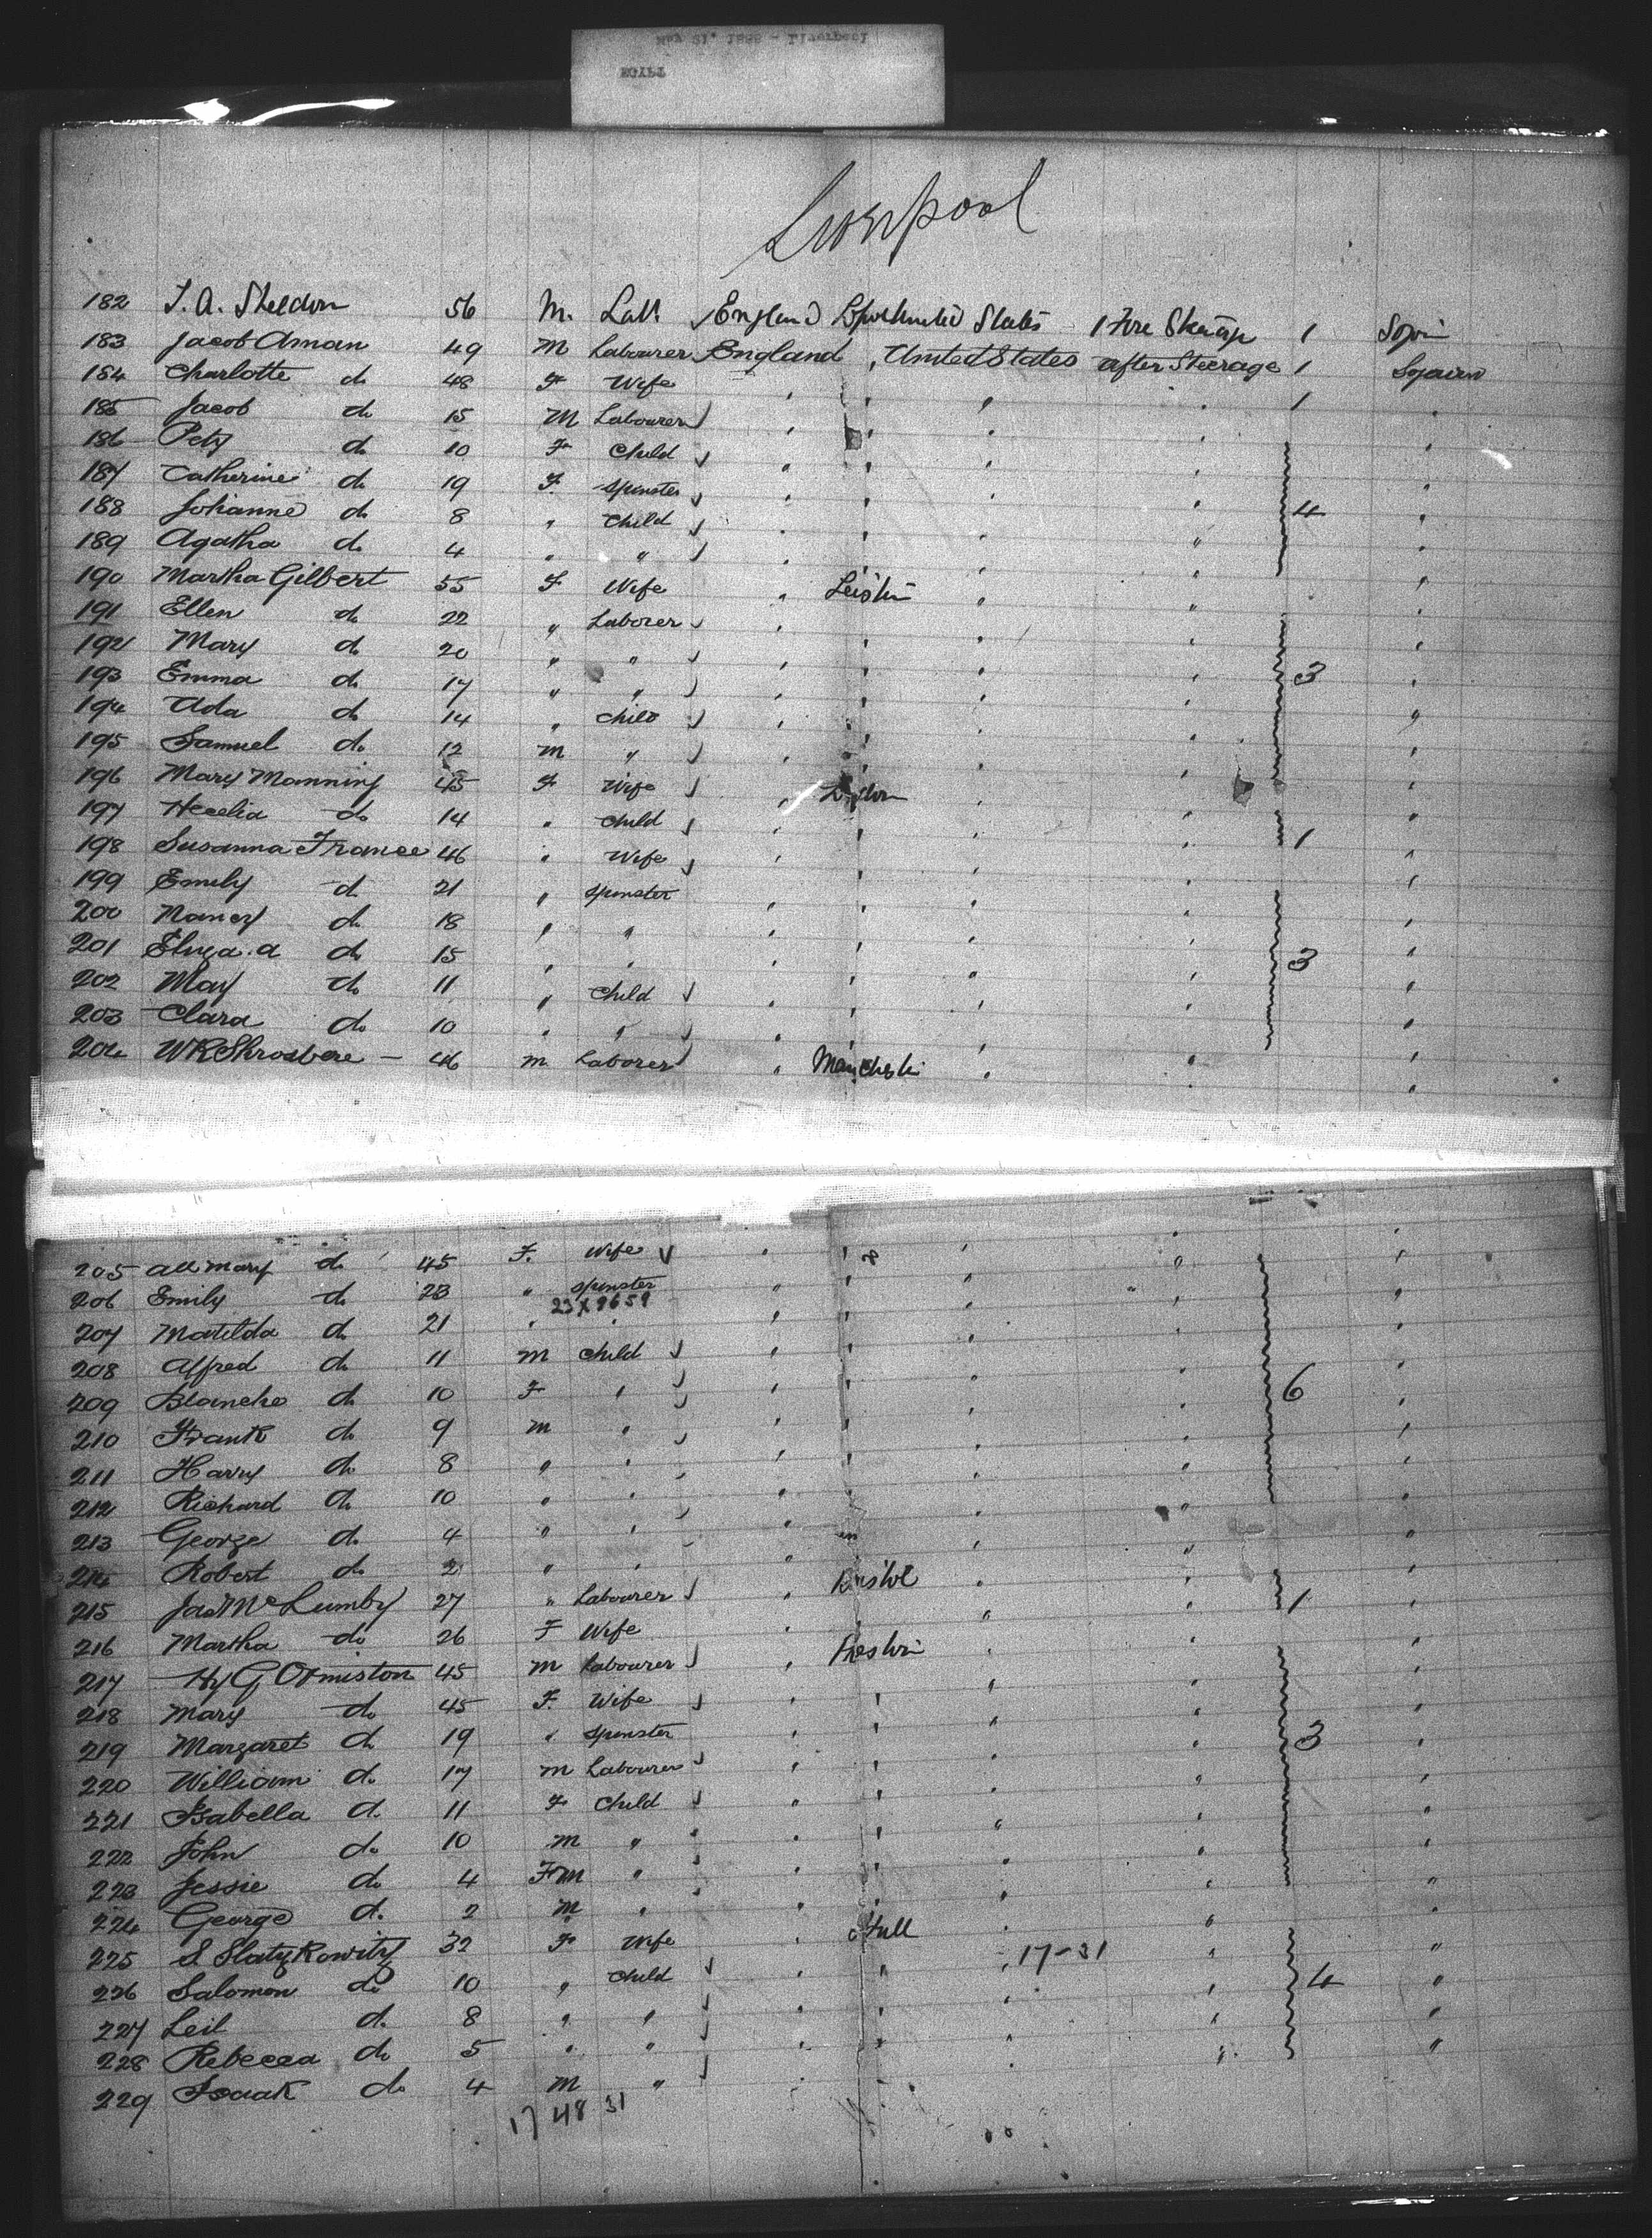 Liverpool
182 J. A. Sheldon 56 M. Lab. England L'pool United States 1 Fore Steerage 1 Sojourn
183 Jacob Aman 49 M Labourer England United States after Steerage 1 Sojourn
184 Charlotte do 48 F Wife " " " " 1 "
185 Jacob do 15 M Labourer " " " " "
186 do 10 F Child " " " " "
187 Catherine do 19 F. Spinster " " " " "
188 Johanne do 8 " Child " " " " 4 "
189 Agatha do 4 " " " " " " "
190 Martha Gilbert 55 F Wife " " " "
191 Ellen do 22 " Laborer " " " " "
192 Mary do 20 " " " " " " "
193 Emma do 17 " " " " " " 3 "
194 Ada do 14 " Child " " " " "
195 Samuel do 12 m " " " " " "
196 Mary Manning 45 F Wife " London " " "
197 do 14 " Child " " " " 1 "
198 Susanna France 46 " Wife " " " " "
199 Emily do 21 " Spinster " " " " "
200 Nancy do 18 " " " " " " "
201 Eliza. a do 15 " " " " " " 3 "
202 May do 11 " Child " " " " "
203 Clara do 10 " " " " " " "
204 W R Shrosbere — 46 m Laborer " Manchester " " "
205 Mary do 45 F. Wife " " " " "
206 Emily do 23 " Spinster " " " " "
23 X 9659
207 Matilda do 21 " " " " " " "
208 Alfred do 11 m Child " " " " "
209 Blanche do 10 F " " " " " 6 "
210 Frank do 9 m " " " " " "
211 Harry do 8 " " " " " " "
212 Richard do 10 " " " " " " "
213 George do 4 " " " " " "
214 Robert do 2 " " " " " "
215 Jas Mc Lumby 27 " Labourer " Bristol " " 1 "
216 Martha do 26 F Wife " " " "
217 Hy G Ormiston 45 m Labourer " Preston " " "
218 Mary do 45 F. Wife " " " " "
219 Margaret do 19 " Spinster " " " " 3 "
220 William do 17 m Labourer " " " " "
221 Isabella do 11 F Child " " " " "
222 John do 10 m " " " " " "
223 Jessie do 4 F m " " " " " "
224 George do 2 m " " " " " "
225 S Slatzkowitz 32 F Wife " Hull " 17-31 " "
226 Salomon do 10 " Child " " " " 4 "
227 Leil do 8 " " " " " " "
228 Rebecca do 5 " " " " " " "
229 Isaak do 4 m " "
17 48 31